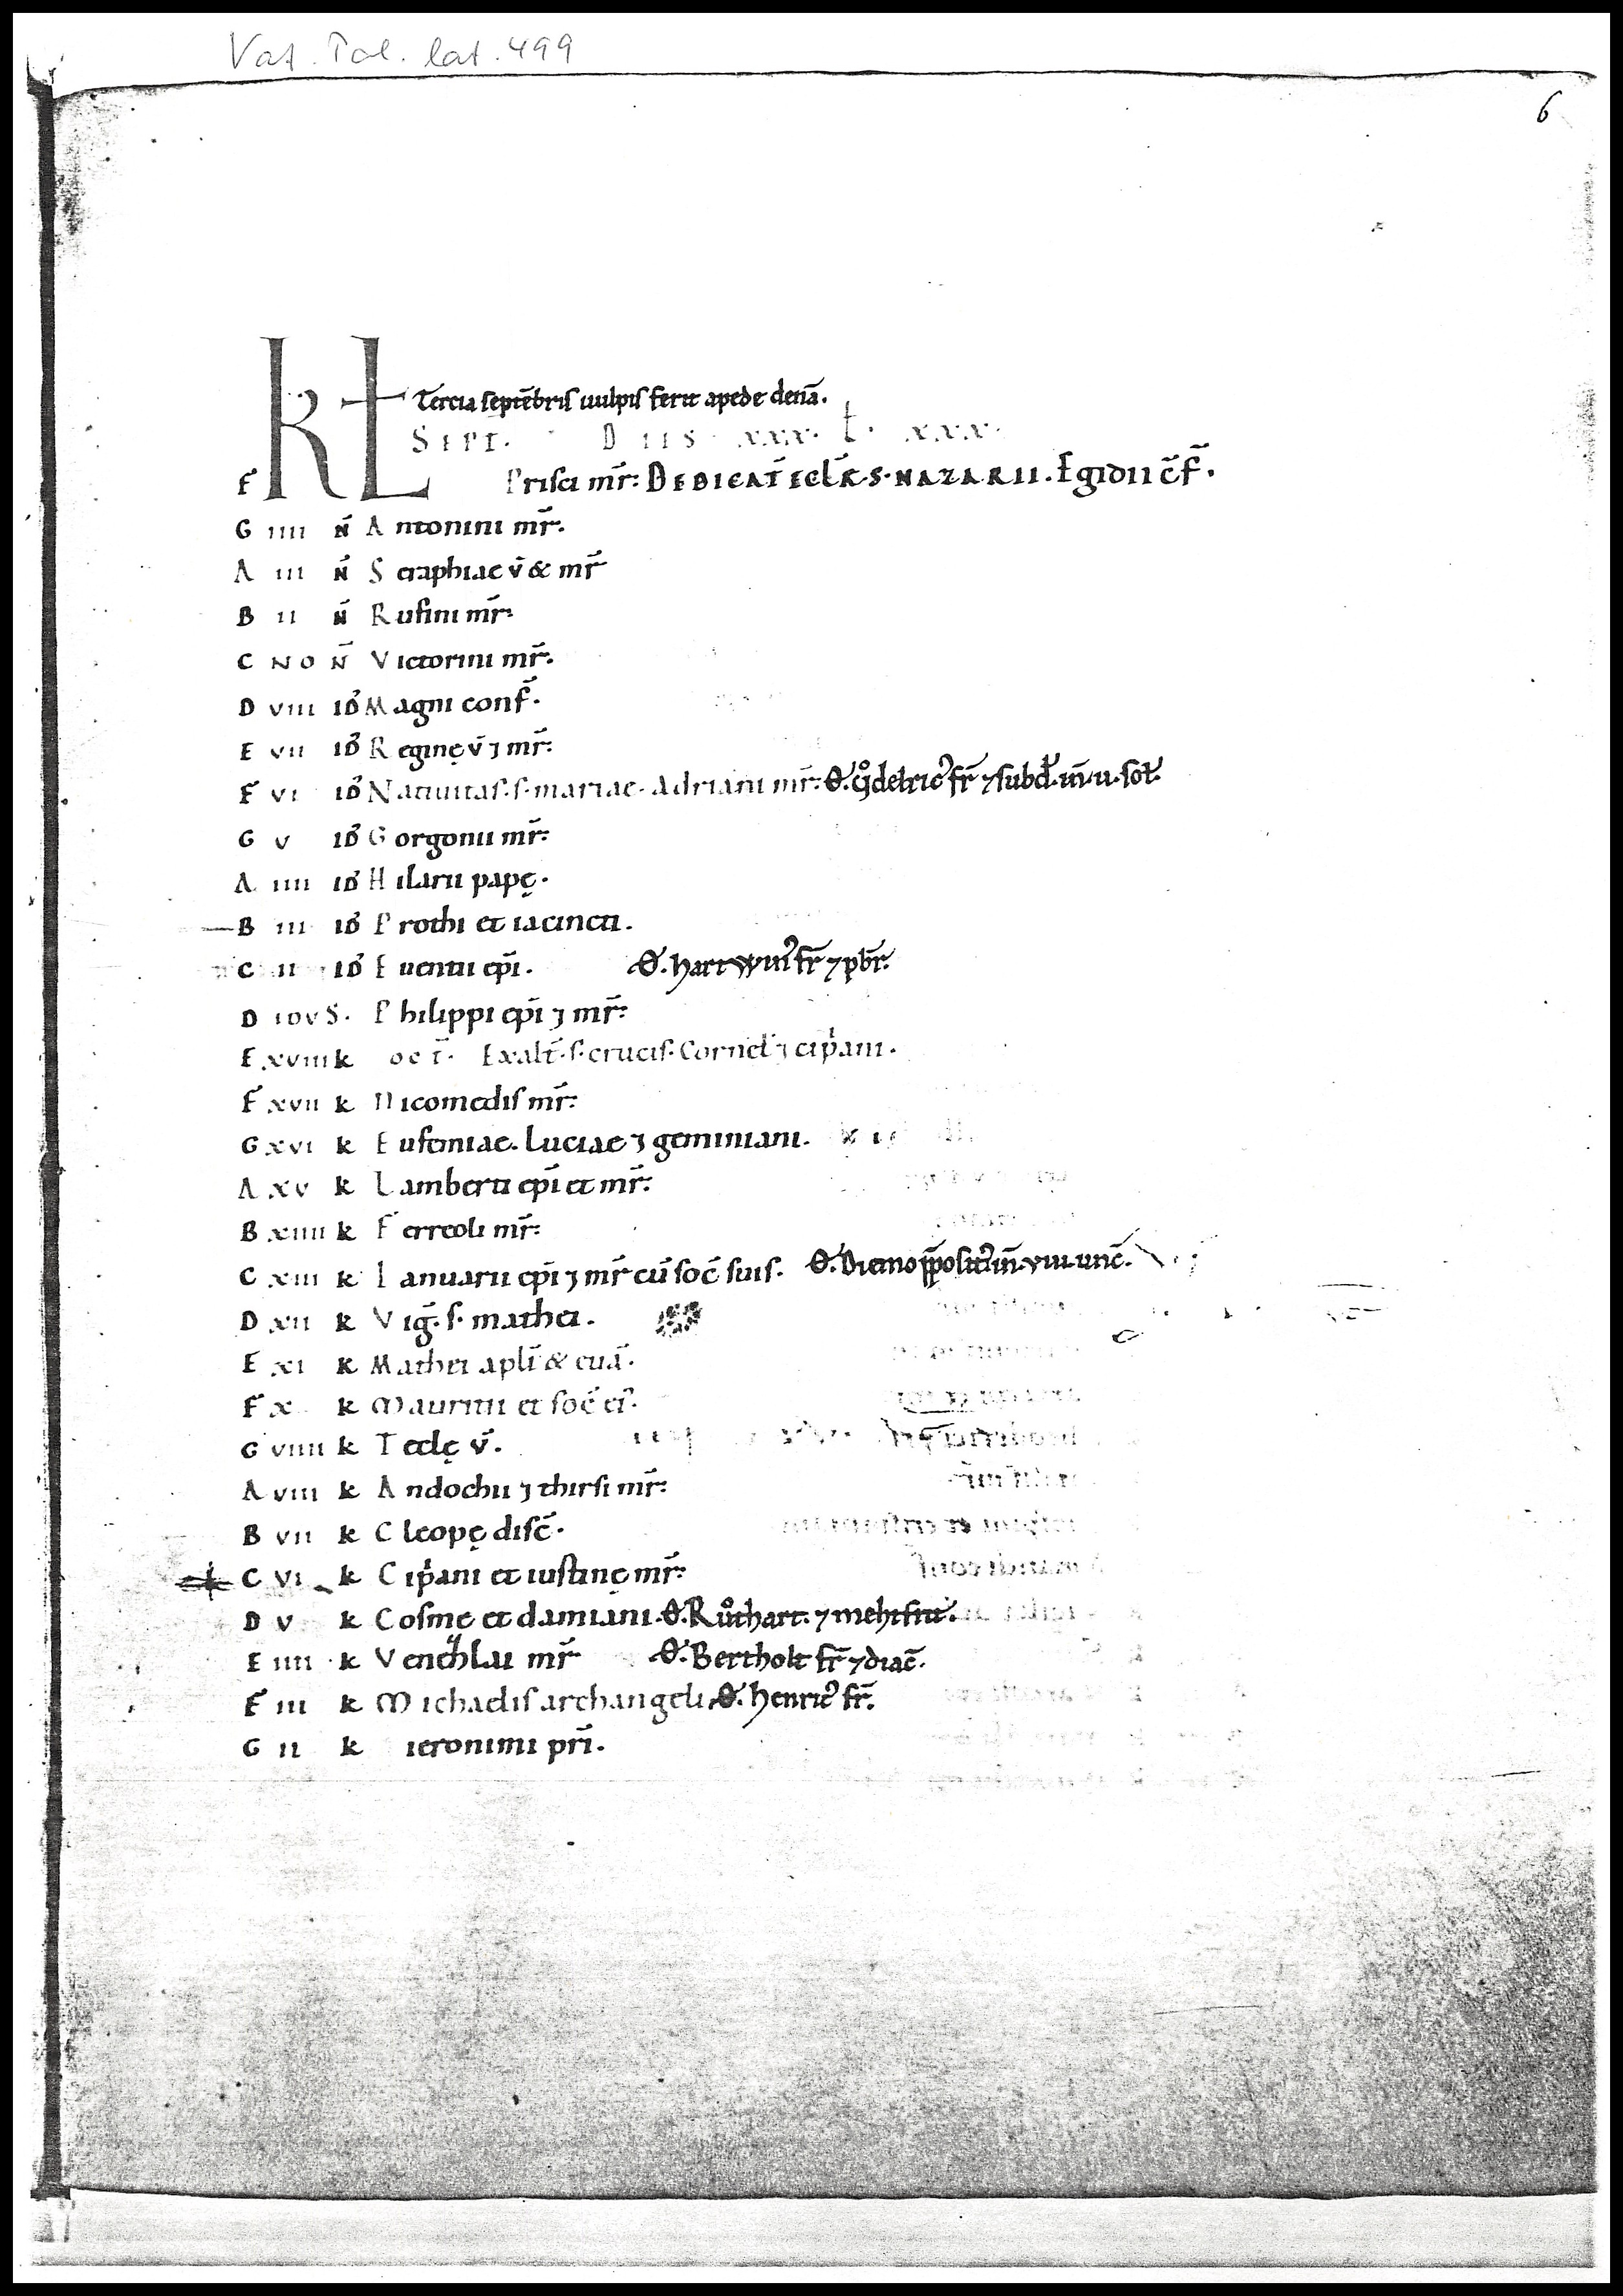 Vat. Pal. lat. 499
6
KL Tercia septēbris uulpis ferit apede denā.
Sept. D ies xxx. L. xxx.
F Prisci mr̄. DEDICAT̄ ECLĒ. S. NAZARII. Egidii c̄f̄.
G iiii N̄ Antonini mr̄.
A iii N̄ Seraphiae v̄ & mr̄
B ii N̄ Rufini mr̄.
C NO N̄ Victorini mr̄.
D viii id̄ Magni conf̄.
E vii id̄ Reginę v̄ ⁊ mr̄.
F vi id̄ Natiuitas. s. mariae. Adriani mr̄. fr̄ ⁊ subd̄. in̄. u. sol̄.
G v id̄ Gorgonii mr̄.
A iiii id̄ Hilarii papę.
B iii id̄ Prothi et iacincti.
C ii id̄ Euentii ep̄i. Θ. hartwin᾿ fr̄ ⁊ pb̄r.
D idus. Philippi ep̄i ⁊ mr̄.
E xviii k oct̄. Exalt̄. s. crucis. Cornel̄ ⁊ cip̄ani.
F xvii k Nicomedis mr̄.
G xvi k Eufemiae. Luciae ⁊ geminiani.
A xv k Lamberti ep̄i et mr̄.
B xiiii k Ferreoli mr̄.
C xiii k Ianuarii ep̄i ⁊ mr̄ cū soc̄ suis. Θ. Diemo p̄posit᾿ in̄. viii. unc̄.
D xii k Viḡ. s. mathei.
E xi k Mathei apl̄i & euā.
F x k Mauritii et soc̄ ei᾿.
G viiii k Teclę v̄.
A viii k Andochii ⁊ thirsi mr̄.
B vii k Cleopę disc̄.
C vi k Cip̄ani et iustinę mr̄.
D v k Cosme et damiani. Θ. Ruͦthart. ⁊ mehtfrit.
E iiii k Venczlai mr̄ Θ. Bertholt fr̄ ⁊ diac̄.
F iii k Michaelis archangeli. Θ. henric᾿ fr̄.
G ii k ieronimi pr̄i.